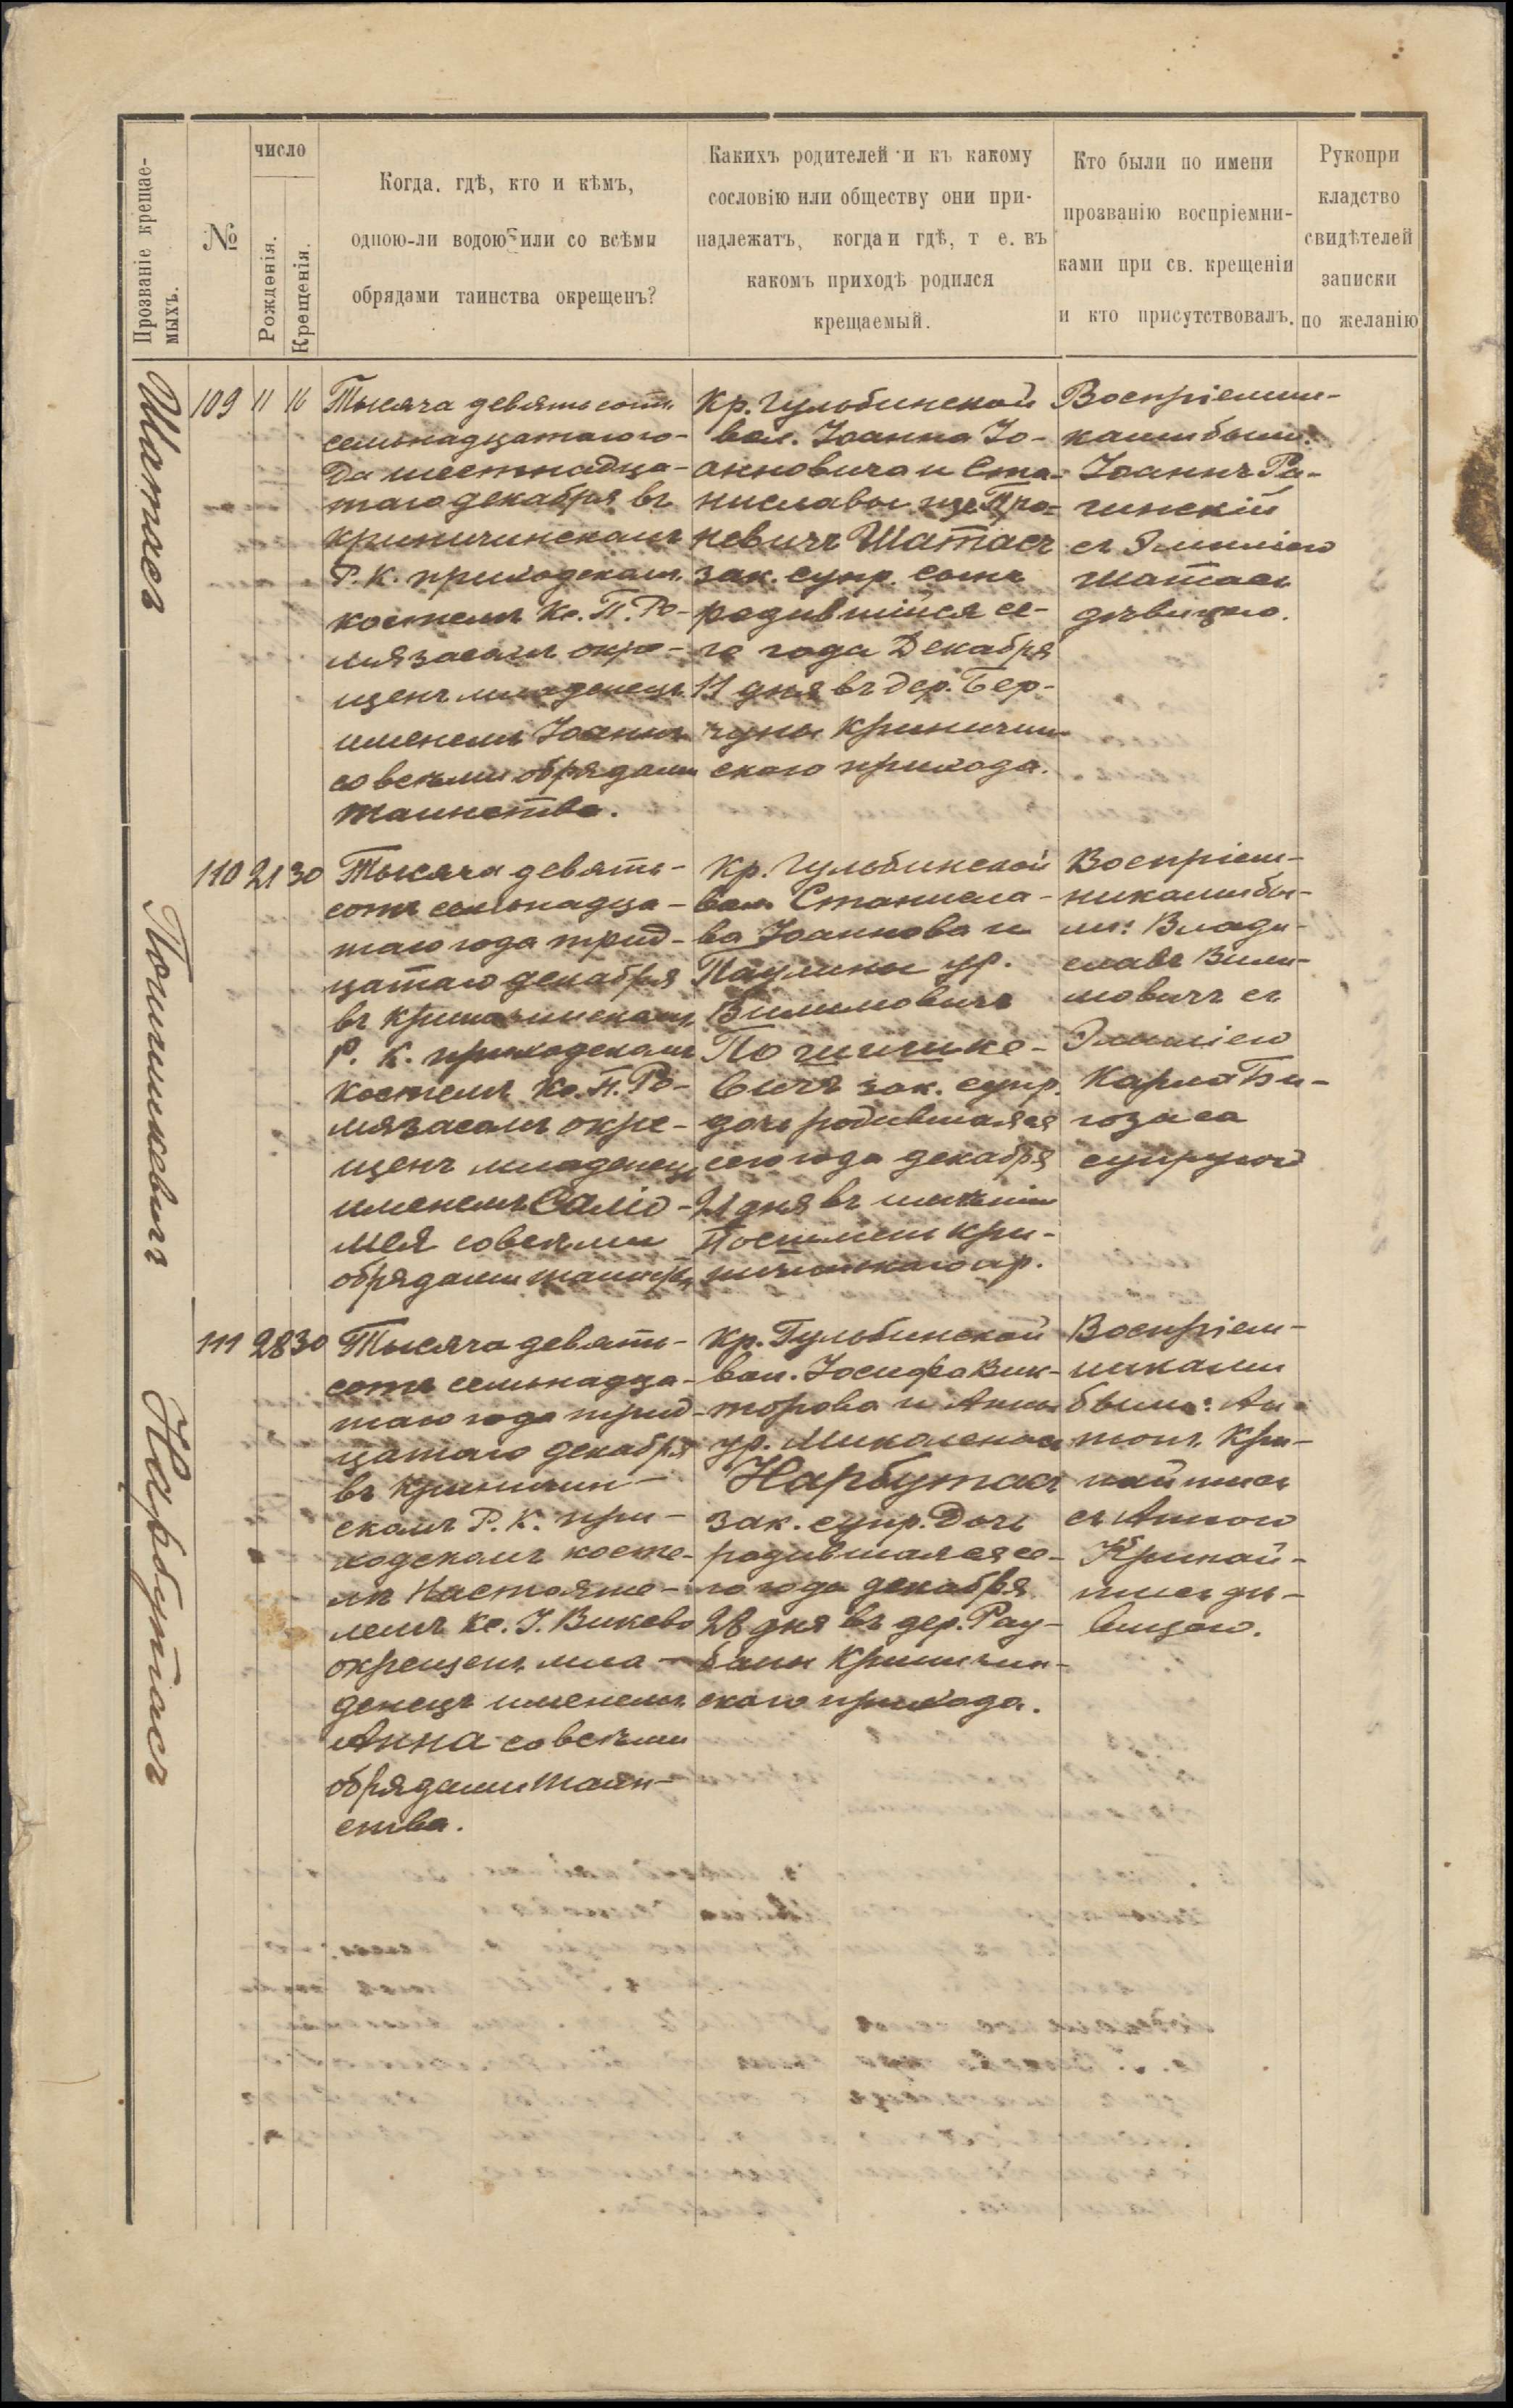 Прозваніе крещае-
мыхъ.
№
число
Рожденія.
Крещенія.
Когда, гдѣ, кто и кѣмъ,
одною-ли водою или со всѣми
обрядами таинства окрещенъ?
Какихъ родителей и къ какому
сословію или обществу они при-
надлежатъ, когда и гдѣ, т е. въ
какомъ приходѣ родился
крещаемый.
Кто были по имени
прозванію воспріемни-
ками при св. крещеніи
и кто присутствовалъ.
Рукопри
кладство
свидѣтелей
записки
по желанію
Шатасъ
109
11
16
Тысяча девятьсотъ
семьнадцатаго го-
да шестнадца-
таго декабря въ
Криничинскомъ
Р. К. приходскомъ
костелѣ Кс. П. Ро-
мязасомъ окре-
щенъ младенецъ
именемъ Іоаннъ
со всѣми обрядами
таинства.
Кр. Гульбинской
вол. Іоанна Іо-
анновича и Ста-
ниславы
невичъ Шатасъ
зак. супр. сынъ
родившійся се-
го года Декабря
11 дня въ дер. Бер-
чуны Криничин-
скаго прихода.
Воспріемни-
ками были:
Іоаннъ Ра-
гинскій
съ Эмиліею
Шатасъ
дѣвицею.
Погишкевичъ
110
21
30
Тысяча девять-
сотъ семьнадца-
таго года трид-
цатаго декабря
въ Криничинскомъ
Р. К. приходскомъ
костелѣ Кс. П. Ро-
мязасомъ окре-
щенъ младенецъ
именемъ Салю-
мея со всѣми
обрядами таинств.
Кр. Гульбинской
вол. Станисла-
ва Іоаннова и
Паулины ур.
Вилимовичъ
вичъ зак. супр.
дочь родившаяся
сего года декабря
21 дня въ имѣніи
Кри-
ничинскаго пр.
Воспріем-
никами бы-
ли: Влади-
славъ Вили-
мовичъ съ
Эмиліею
Карла Би-
гозаса
супругой
Нарбутасъ
111
28
30
Тысяча девять-
сотъ семьнадца-
таго года трид-
цатаго декабря
въ Криничин-
скомъ Р. К. при-
ходскомъ косте-
лѣ Настояте-
лемъ Кс. І. Викево
окрещенъ мла-
денецъ именемъ
Анна со всѣми
обрядами таин-
ства.
Кр. Гульбинской
вол. Іосифа Вик-
торова и Анны
ур.
Нарбутасъ
зак. супр. Дочь
родившаяся се-
го года декабря
28 дня въ дер. Рау-
баны Криничин-
скаго прихода.
Воспріем-
никами
были: Ан-
тонъ Кри-
съ Анною
дѣ-
вицею.